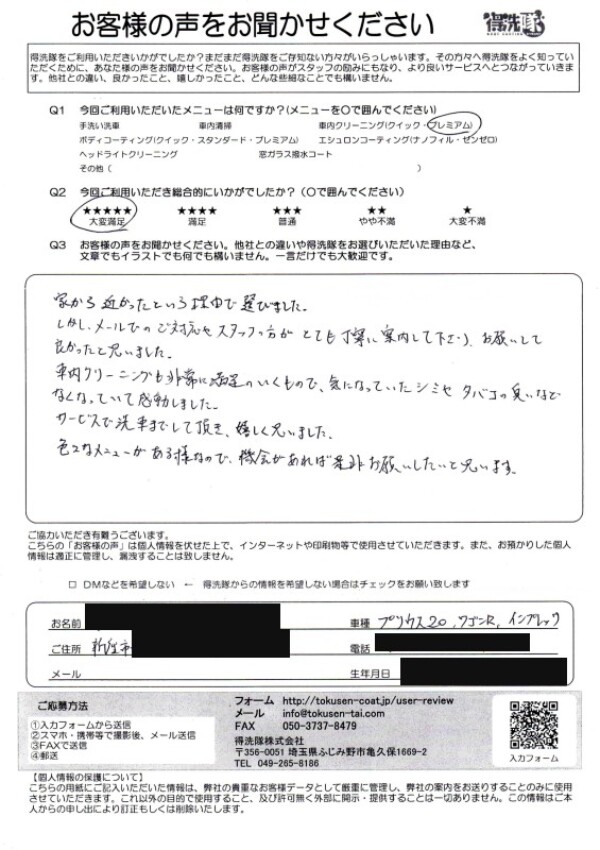 お客様の声をお聞かせください
得洗隊
得洗隊をご利用いただきいかがでしたか？まだまだ得洗隊をご存知ない方々がいらっしゃいます。その方々へ得洗隊をよく知ってい
ただくために、あなた様の声をお聞かせください。お客様の声がスタッフの励みにもなり、より良いサービスへとつながっていきま
す。他社との違い、良かったこと、嬉しかったこと、どんな些細なことでも構いません。
Q1 今回ご利用いただいたメニューは何ですか？(メニューを〇で囲んでください)
手洗い洗車 車内清掃 車内クリーニング(クイック・プレミアム)
ボディコーティング(クイック・スタンダード・プレミアム) エシュロンコーティング(ナノフィル・ゼンゼロ)
ヘッドライトクリーニング 窓ガラス撥水コート
その他( )
Q2 今回ご利用いただき総合的にいかがでしたか？(〇で囲んでください)
★★★★★ ★★★★ ★★★ ★★ ★
大変満足 満足 普通 やや不満 大変不満
Q3 お客様の声をお聞かせください。他社との違いや得洗隊をお選びいただいた理由など、
文章でもイラストでも何でも構いません。一言だけでも大歓迎です。
家から近かったという理由で選びました。
しかし、メールでのご対応やスタッフの方がとても丁寧に案内して下さり、お願いして
良かったと思いました。
車内クリーニングも非常に満足のいくもので、気になっていたシミやタバコの臭いなど
なくなっていて感動しました。
サービスで洗車までして頂き、嬉しく思いました。
色々なメニューがある様なので、機会があれば是非お願いしたいと思います。
ご協力いただき有難うございます。
こちらの「お客様の声」は個人情報を伏せた上で、インターネットや印刷物等で使用させていただきます。また、お預かりした個人
情報は適正に管理し、漏洩することは致しません。
□ DMなどを希望しない ← 得洗隊からの情報を希望しない場合はチェックをお願い致します
お名前 車種 プリウス20、ワゴンR、インプレッサ
ご住所 新座市 電話
メール 生年月日
ご応募方法
①入力フォームから送信
②スマホ・携帯等で撮影後、メール送信
③FAXで送信
④郵送
フォーム http://tokusen-coat.jp/user-review
メール info@tokusen-tai.com
FAX 050-3737-8479
得洗隊株式会社
〒356-0051 埼玉県ふじみ野市亀久保1669-2
TEL 049-265-8186
入力フォーム
【個人情報の保護について】
こちらの用紙にご記入いただいた情報は、弊社の貴重なお客様データとして厳重に管理し、弊社の案内をお送りすることのみに使用
させていただきます。これ以外の目的で使用すること、及び許可無く外部に開示・提供することは一切ありません。この情報はご本
人からの申し出により訂正もしくは削除いたします。